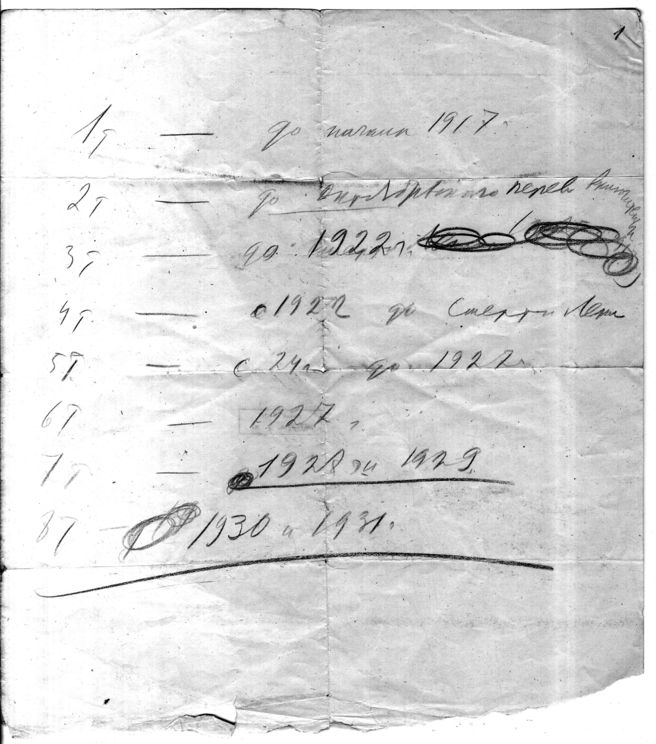 1
1т — до начала 1917.
2т — до октябрьского перев
3т — до 1922 г.
4т — с 1922 до Смерти Лен
5т — с 24 г до 1927
6т — 1927 г
7т — 1928 и 1929
8т — 1930 и 1931.